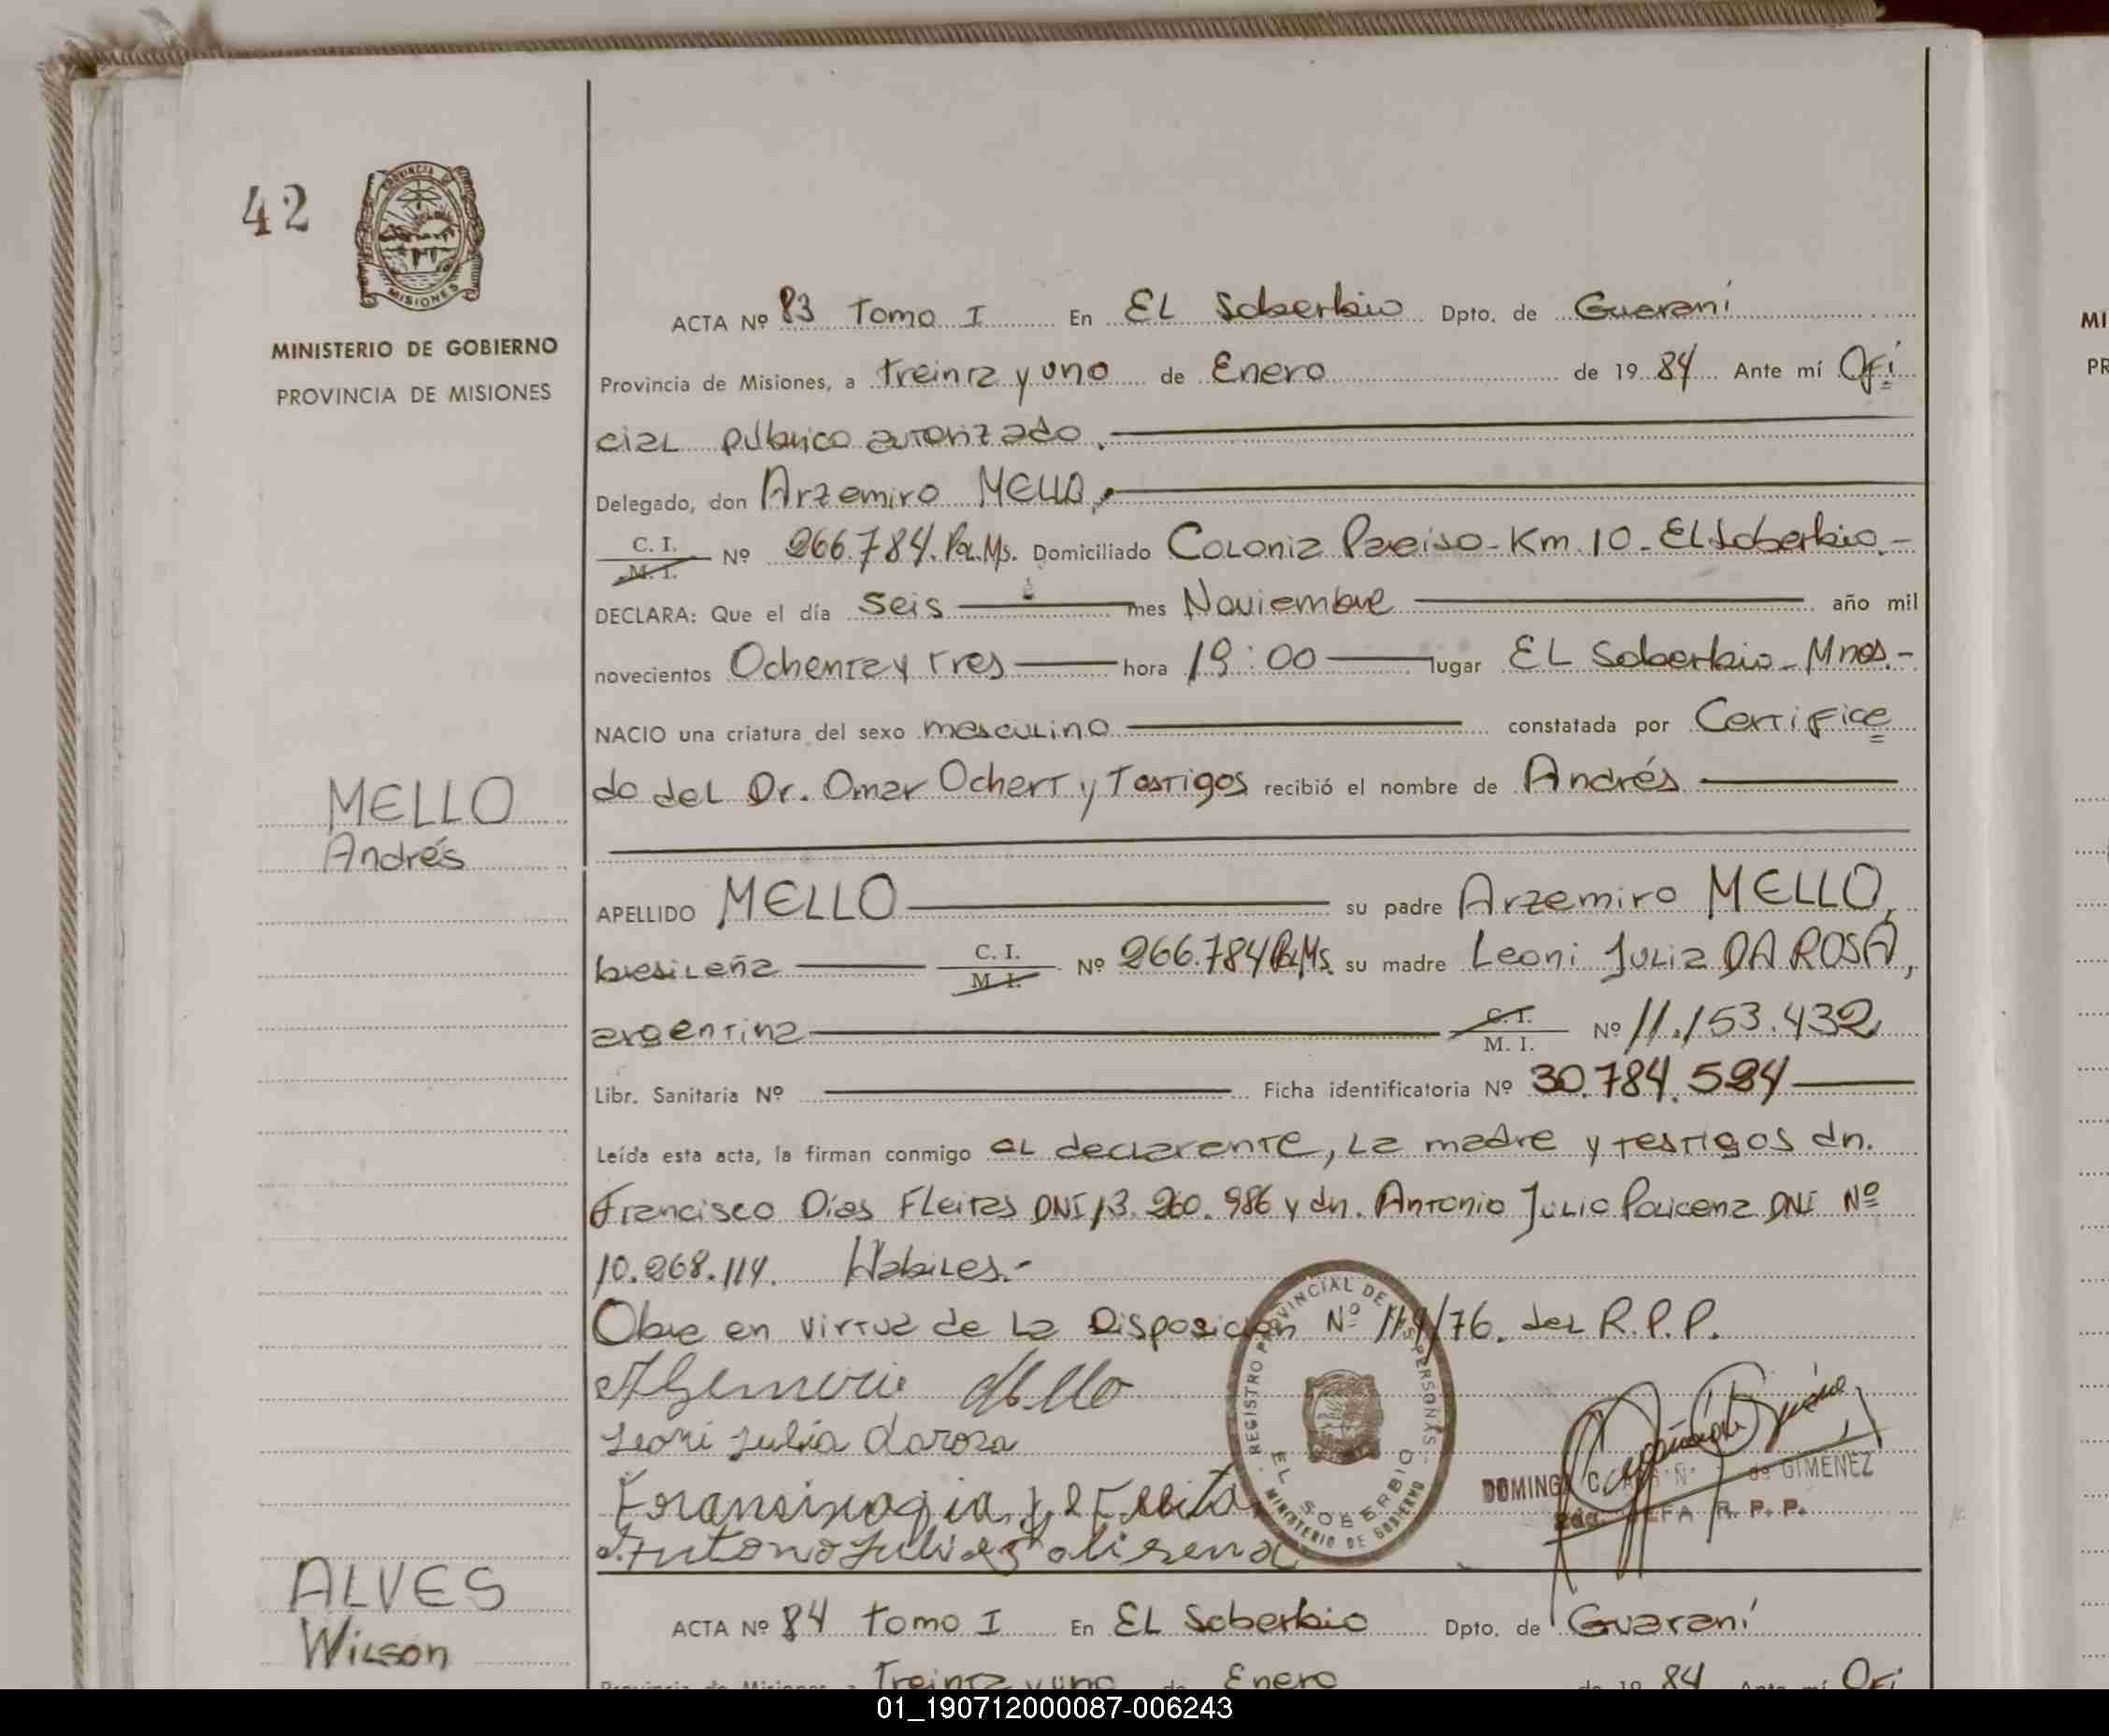 42
PROVINCIA DE
MISIONES
MINISTERIO DE GOBIERNO
PROVINCIA DE MISIONES
ACTA Nº 83 Tomo I En EL Soberbio Dpto. de Guaraní
Provincia de Misiones, a treinta y uno de Enero de 1984 Ante mí Ofi
cial público autorizado.
Delegado, don Arzemiro MELLO,
C. I. M. I. Nº 266.784. Pol.Ms. Domiciliado Colonia Paraiso - Km 10 - EL Soberbio.-
DECLARA: Que el día Seis mes Noviembre año mil
novecientos Ochenta y tres hora 19:00 lugar EL Soberbio - Mnes.-
NACIO una criatura del sexo masculino constatada por Certifica
do del Dr. Omar Ochert y Testigos recibió el nombre de Andrés
MELLO
Andrés
APELLIDO MELLO su padre Arzemiro MELLO,
brasileña C. I. M. I. Nº 266.784 Pol.Ms. su madre Leoni Julia DA ROSA,
argentina C. I. M. I. Nº 11.153.432
Libr. Sanitaria Nº Ficha identificatoria Nº 30.784.594
Leída esta acta, la firman conmigo el declarante, la madre y testigos dn.
Francisco Dias Fleitas DNI 13.260.986 y dn. Antonio Julio Policena DNI Nº
10.268.114. Habiles.-
Obre en virtud de la Disposición Nº 119/76. del R.P.P.
Mello
Leoni Julia darosa
REGISTRO PROVINCIAL DE LAS PERSONAS
EL SOBERBIO
MINISTERIO DE GOBIERNO
DOMINGA C. de GIMENEZ
2da. JEFA R. P. P.
ALVES
Wilson
ACTA Nº 84 tomo I En EL Soberbio Dpto. de Guaraní
Provincia de Misiones, a Treinta y uno de Enero de 1984 Ante mí Ofi
MI
PR
01_190712000087-006243